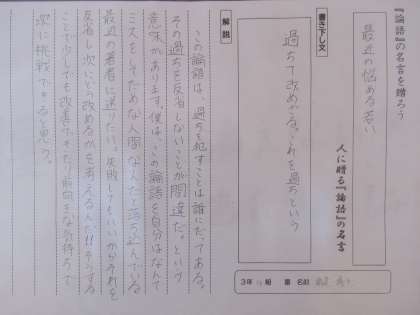 『論語』の名言を贈ろう
最近の悩める若い
人に贈る『論語』の名言
書き下し文
過ちて改めざる。これを過ちという
解説
この論語は、過ちを犯すことは誰にだってある。
その過ちを反省しないことが間違だ。という
意味があります。僕は、この論語を自分はなんて
ミスをしてだめな人間なんだと落ち込んでいる
最近の若者に送りたい。失敗してもいいからそれを
反省し次いどう改めるかを考えるんだ!!そうする
ことで少しでも改善され、また、前向きな気持ちで
次に挑戦できると思う。
3年 組 番 名前